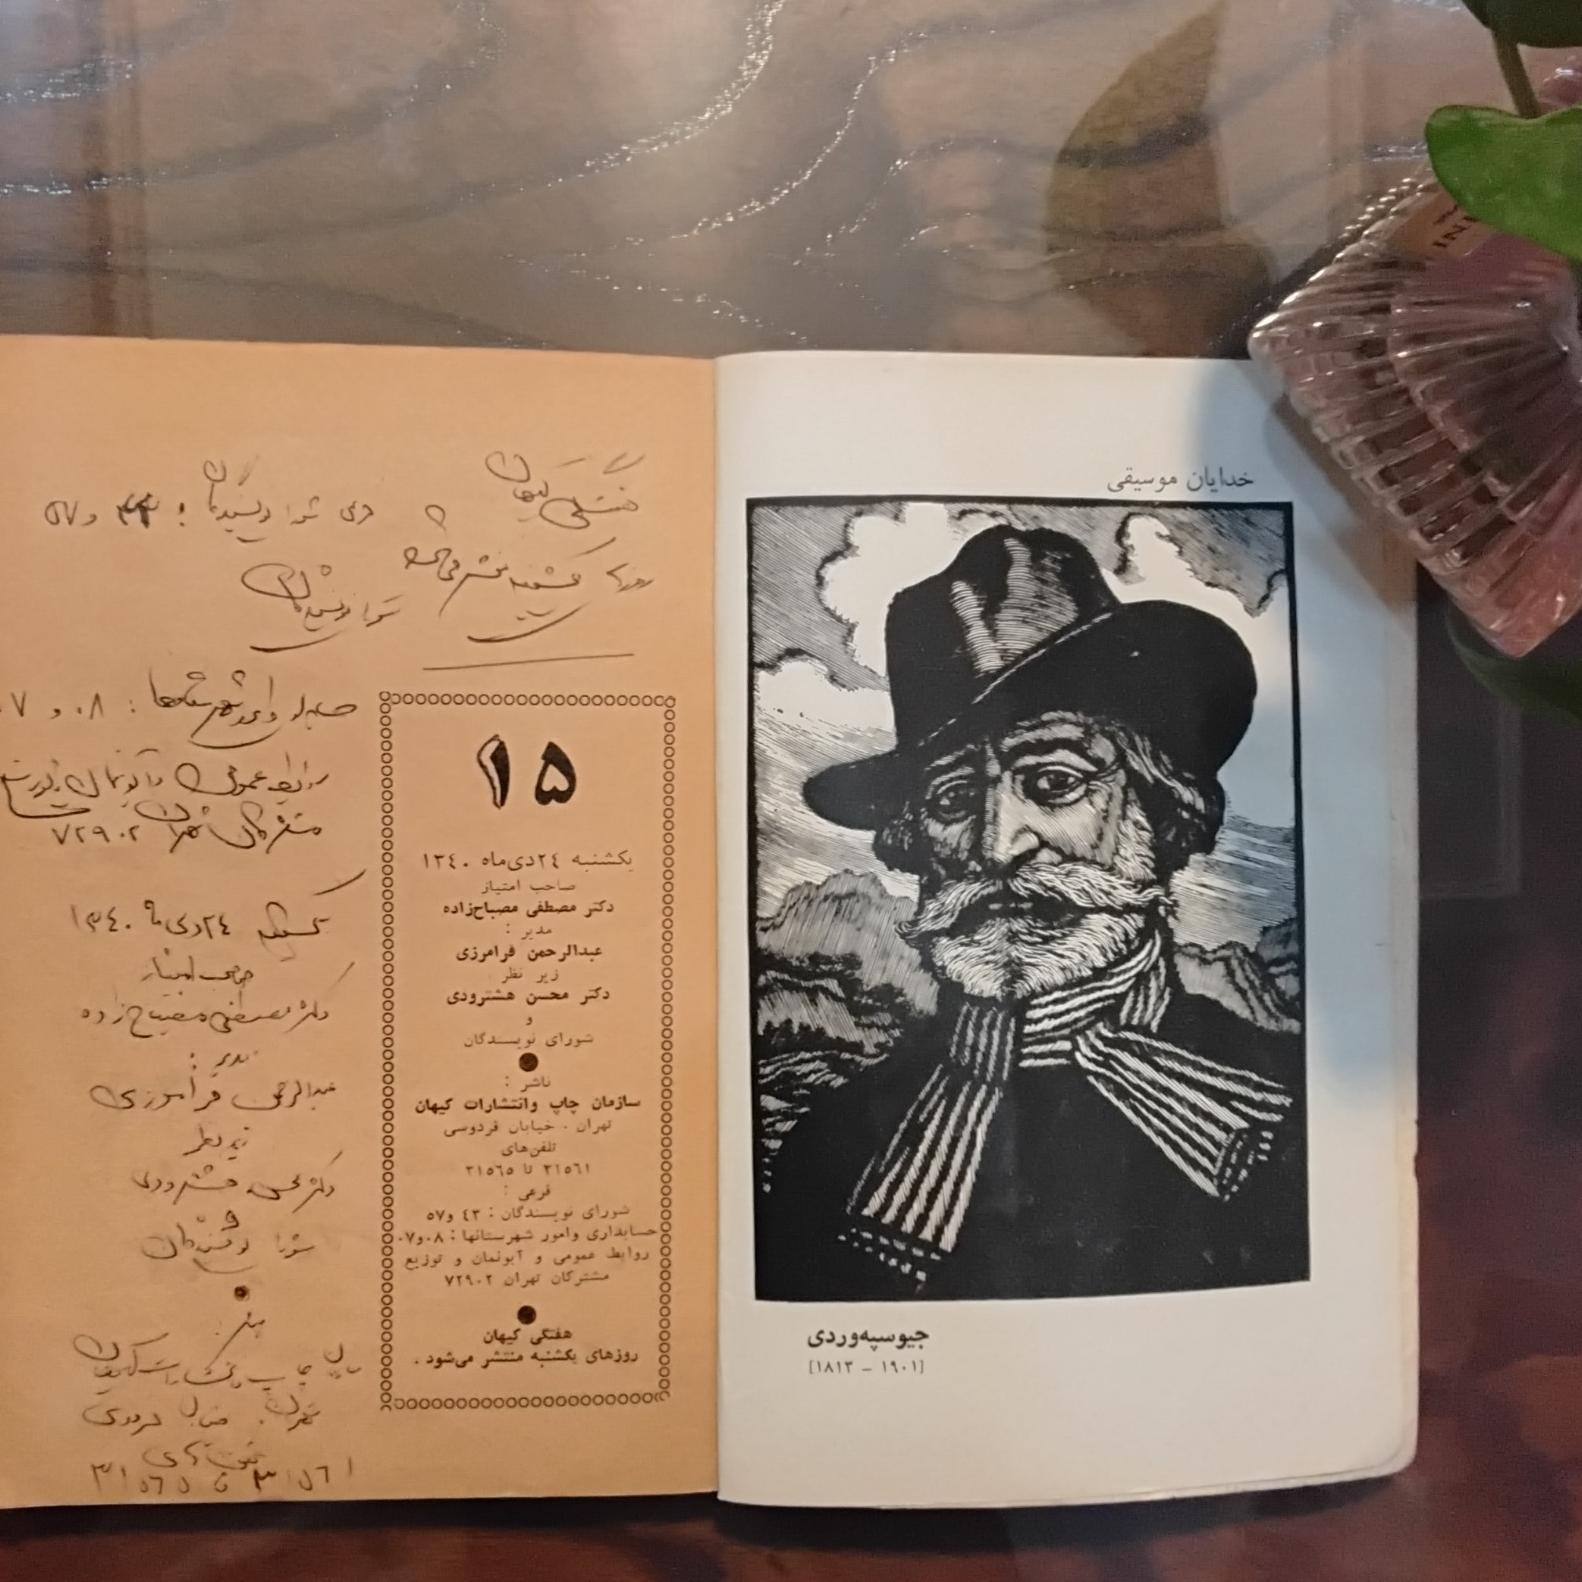 خدایان موسیقی
جیوسپه‌وردی
[۱۹۰۱ – ۱۸۱۳]
۱۵
یکشنبه ۲۴ دی‌ماه ۱۳۴۰
صاحب امتیاز
دکتر مصطفی مصباح‌زاده
مدیر :
عبدالرحمن فرامرزی
زیر نظر
دکتر محسن هشترودی
و
شورای نویسندگان
ناشر :
سازمان چاپ وانتشارات کیهان
تهران . خیابان فردوسی
تلفن‌های
۳۱۵۶۱ تا ۳۱۵۶۵
فرعی :
شورای نویسندگان : ۴۳ و۵۷
حسابداری وامور شهرستانها : ۰۸و۰۷
روابط عمومی و آبونمان و توزیع
مشترکان تهران ۷۲۹۰۲
هفتگی کیهان
روزهای یکشنبه منتشر می‌شود .
هفتگی کیهان
روزها یکشنبه منتشر می‌شود
شورا نویسندگان
: ۰۸ و ۰۷
روابط عمومی
مشترکان تهران ۷۲۹۰۲
یکشنبه ۲۴ دی ماه ۱۳۴۰
صاحب امتیاز
دکتر مصطفی مصباح زاده
مدیر :
عبدالرحمن فرامرزی
زیر نظر
دکتر محسن هشترودی
و
شورا نویسندگان
تهران .
۳۱۵۶۱ تا ۳۱۵۶۵